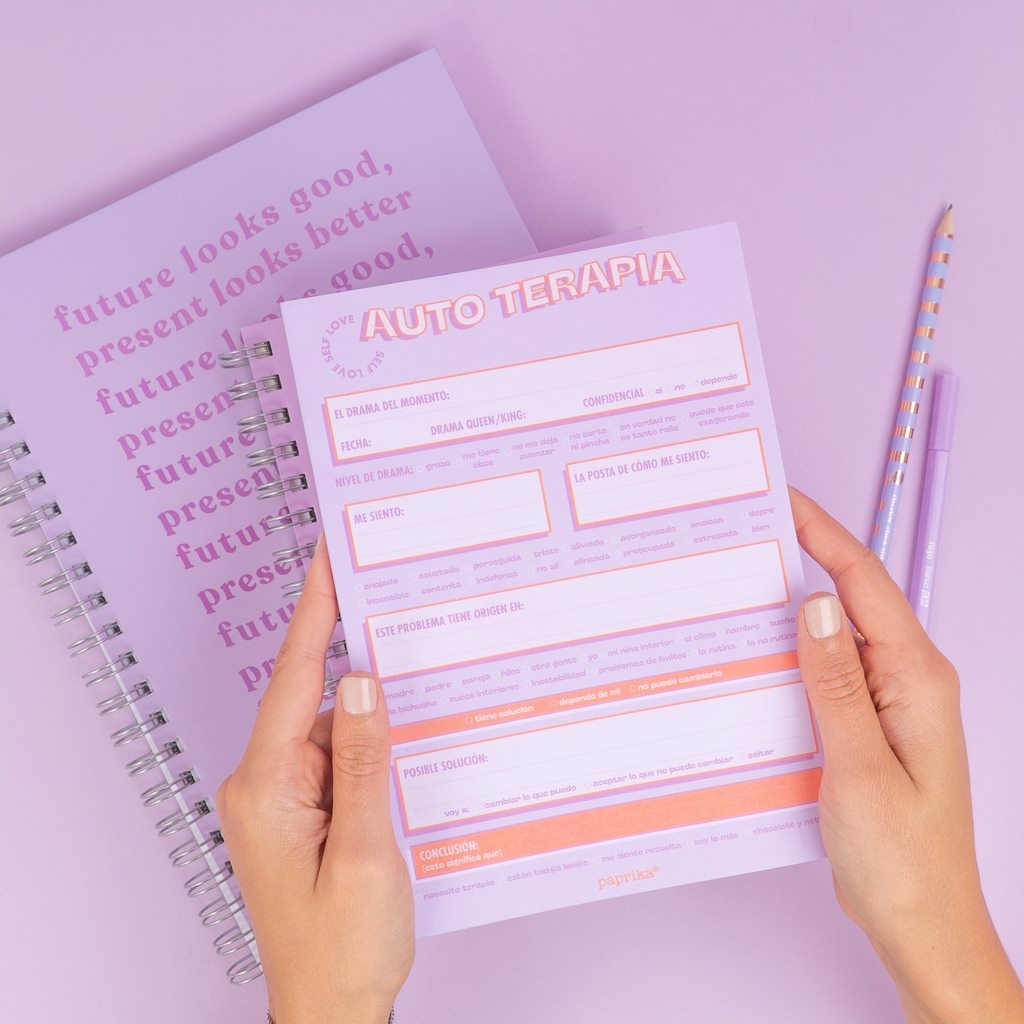 future looks good,
present looks better
future looks good,
present
future
present
future
present
future
AUTO TERAPIA
SELF LOVE SELF LOVE
EL DRAMA DEL MOMENTO:
FECHA: DRAMA QUEEN/KING: CONFIDENCIAL si no depende
NIVEL DE DRAMA: groso me tiene obse no me deja avanzar no corta ni pincha en verdad no es tanto rollo puede que esté exagerando
ME SIENTO:
LA POSTA DE CÓMO ME SIENTO:
enojada asustada perseguida triste aliviada avergonzada ansiosa depre
insensible contenta indefensa no sé alineada preocupada estresada bien
ESTE PROBLEMA TIENE ORIGEN EN:
madre padre pareja hijos otra gente yo mi niña interior el clima hambre sueño
la bichucha cucos interiores inestabilidad problemas de límites la rutina la no rutina
tiene solución depende de mi no puedo cambiarlo
POSIBLE SOLUCIÓN:
voy a: cambiar lo que puedo aceptar lo que no puedo cambiar soltar
CONCLUSIÓN:
(esto significa que)
necesito terapia están tod@s loc@s me siento resuelta soy lo más chocolate y
paprika®